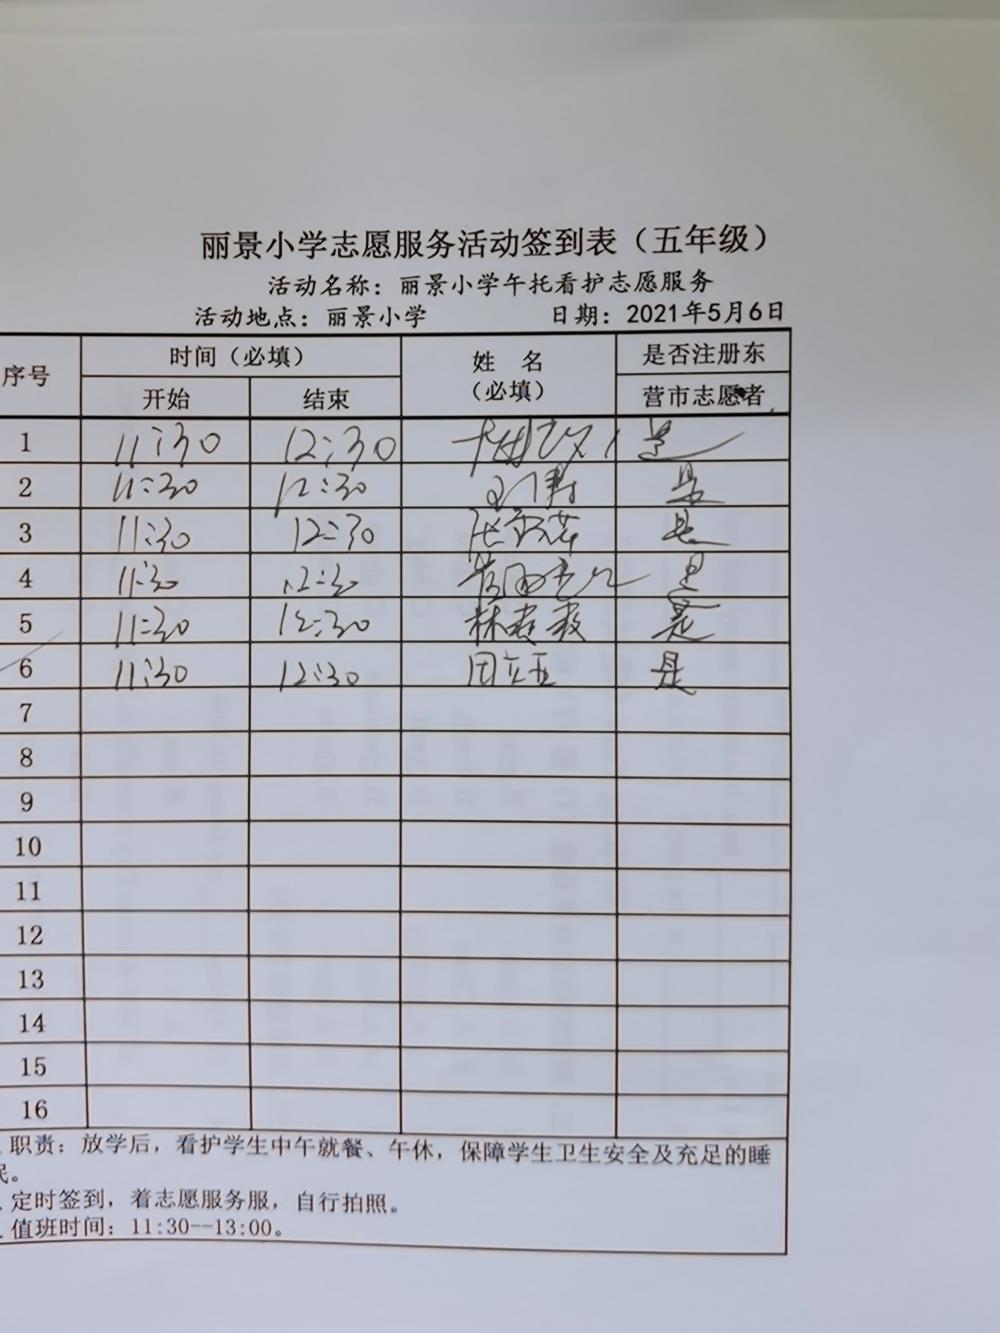 丽景小学志愿服务活动签到表（五年级）
活动名称：丽景小学午托看护志愿服务
活动地点：丽景小学 日期：2021年5月6日
序号 时间（必填） 姓 名（必填） 是否注册东营市志愿者
开始 结束
1 11:30 12:30 是
2 11:30 12:30 是
3 11:30 12:30 张 是
4 11:30 12:30 是
5 11:30 12:30 林 是
6 11:30 12:30 田立玉 是
7
8
9
10
11
12
13
14
15
16
职责：放学后，看护学生中午就餐、午休，保障学生卫生安全及充足的睡
眠。
定时签到，着志愿服务服，自行拍照。
值班时间：11:30--13:00。